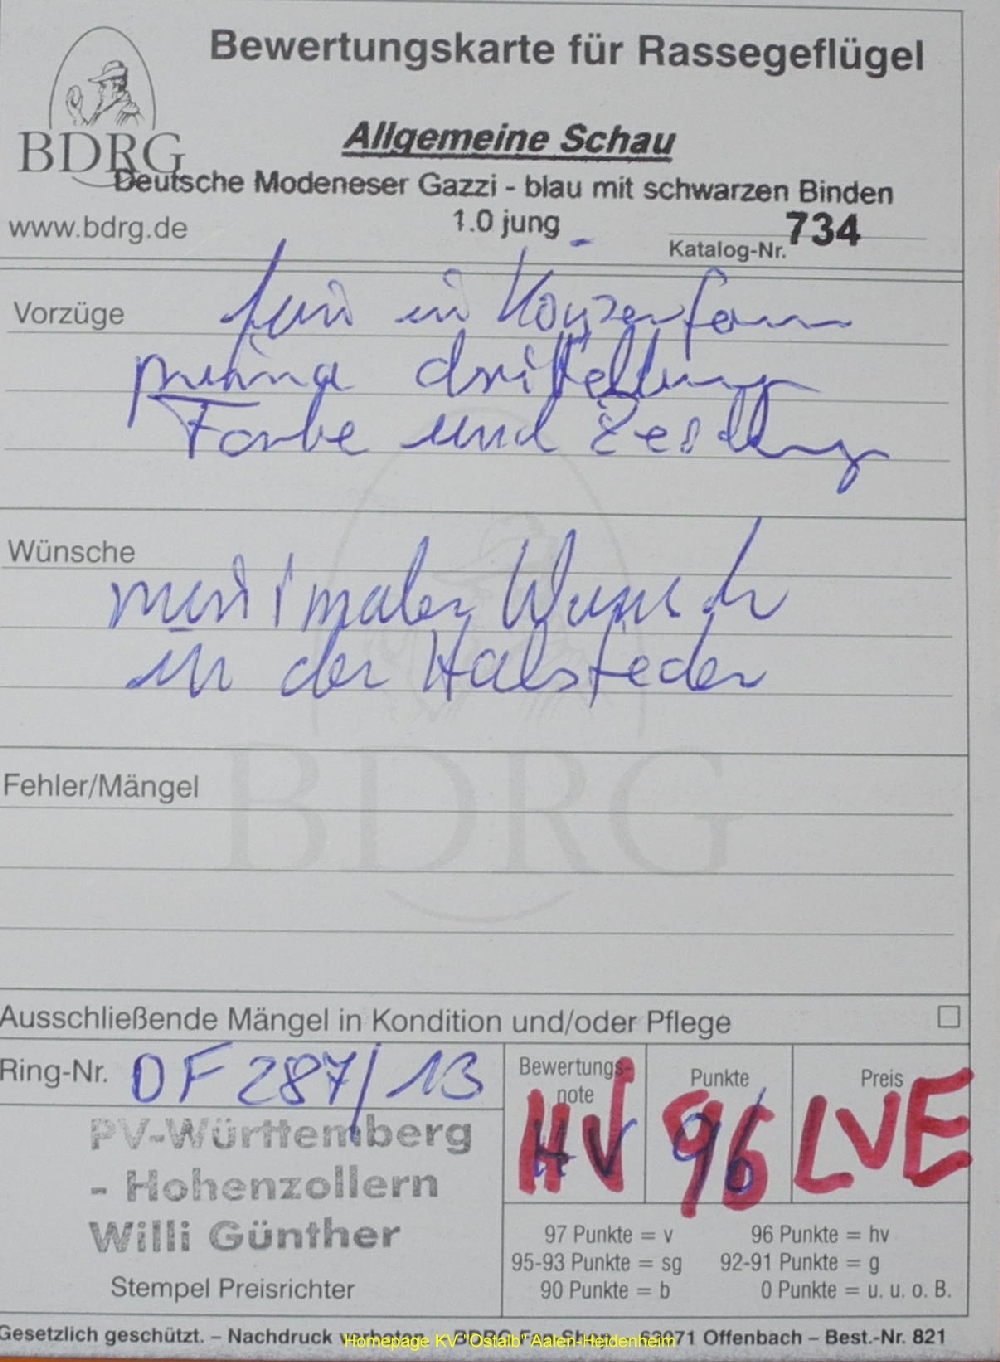 Bewertungskarte für Rassegeflügel
BDRG
Allgemeine Schau
Deutsche Modeneser Gazzi - blau mit schwarzen Binden
www.bdrg.de
1.0 jung
Katalog-Nr. 734
Vorzüge
fein in Körperform
prima dritellung
Farbe und
Wünsche
maximaler Wunsch
in der Halsfeder
BDRG
Fehler/Mängel
Ausschließende Mängel in Kondition und/oder Pflege
Ring-Nr. DF 287/13
Bewertungs-
note
HV
Punkte
96
Preis
LVE
PV-Württemberg
- Hohenzollern
Willi Günther
Stempel Preisrichter
97 Punkte = v
96 Punkte = hv
95-93 Punkte = sg
92-91 Punkte = g
90 Punkte = b
0 Punkte = u. u. o. B.
Gesetzlich geschützt. – Nachdruck 71 Offenbach – Best.-Nr. 821
Homepage KV "Ostalb" Aalen-Heidenheim